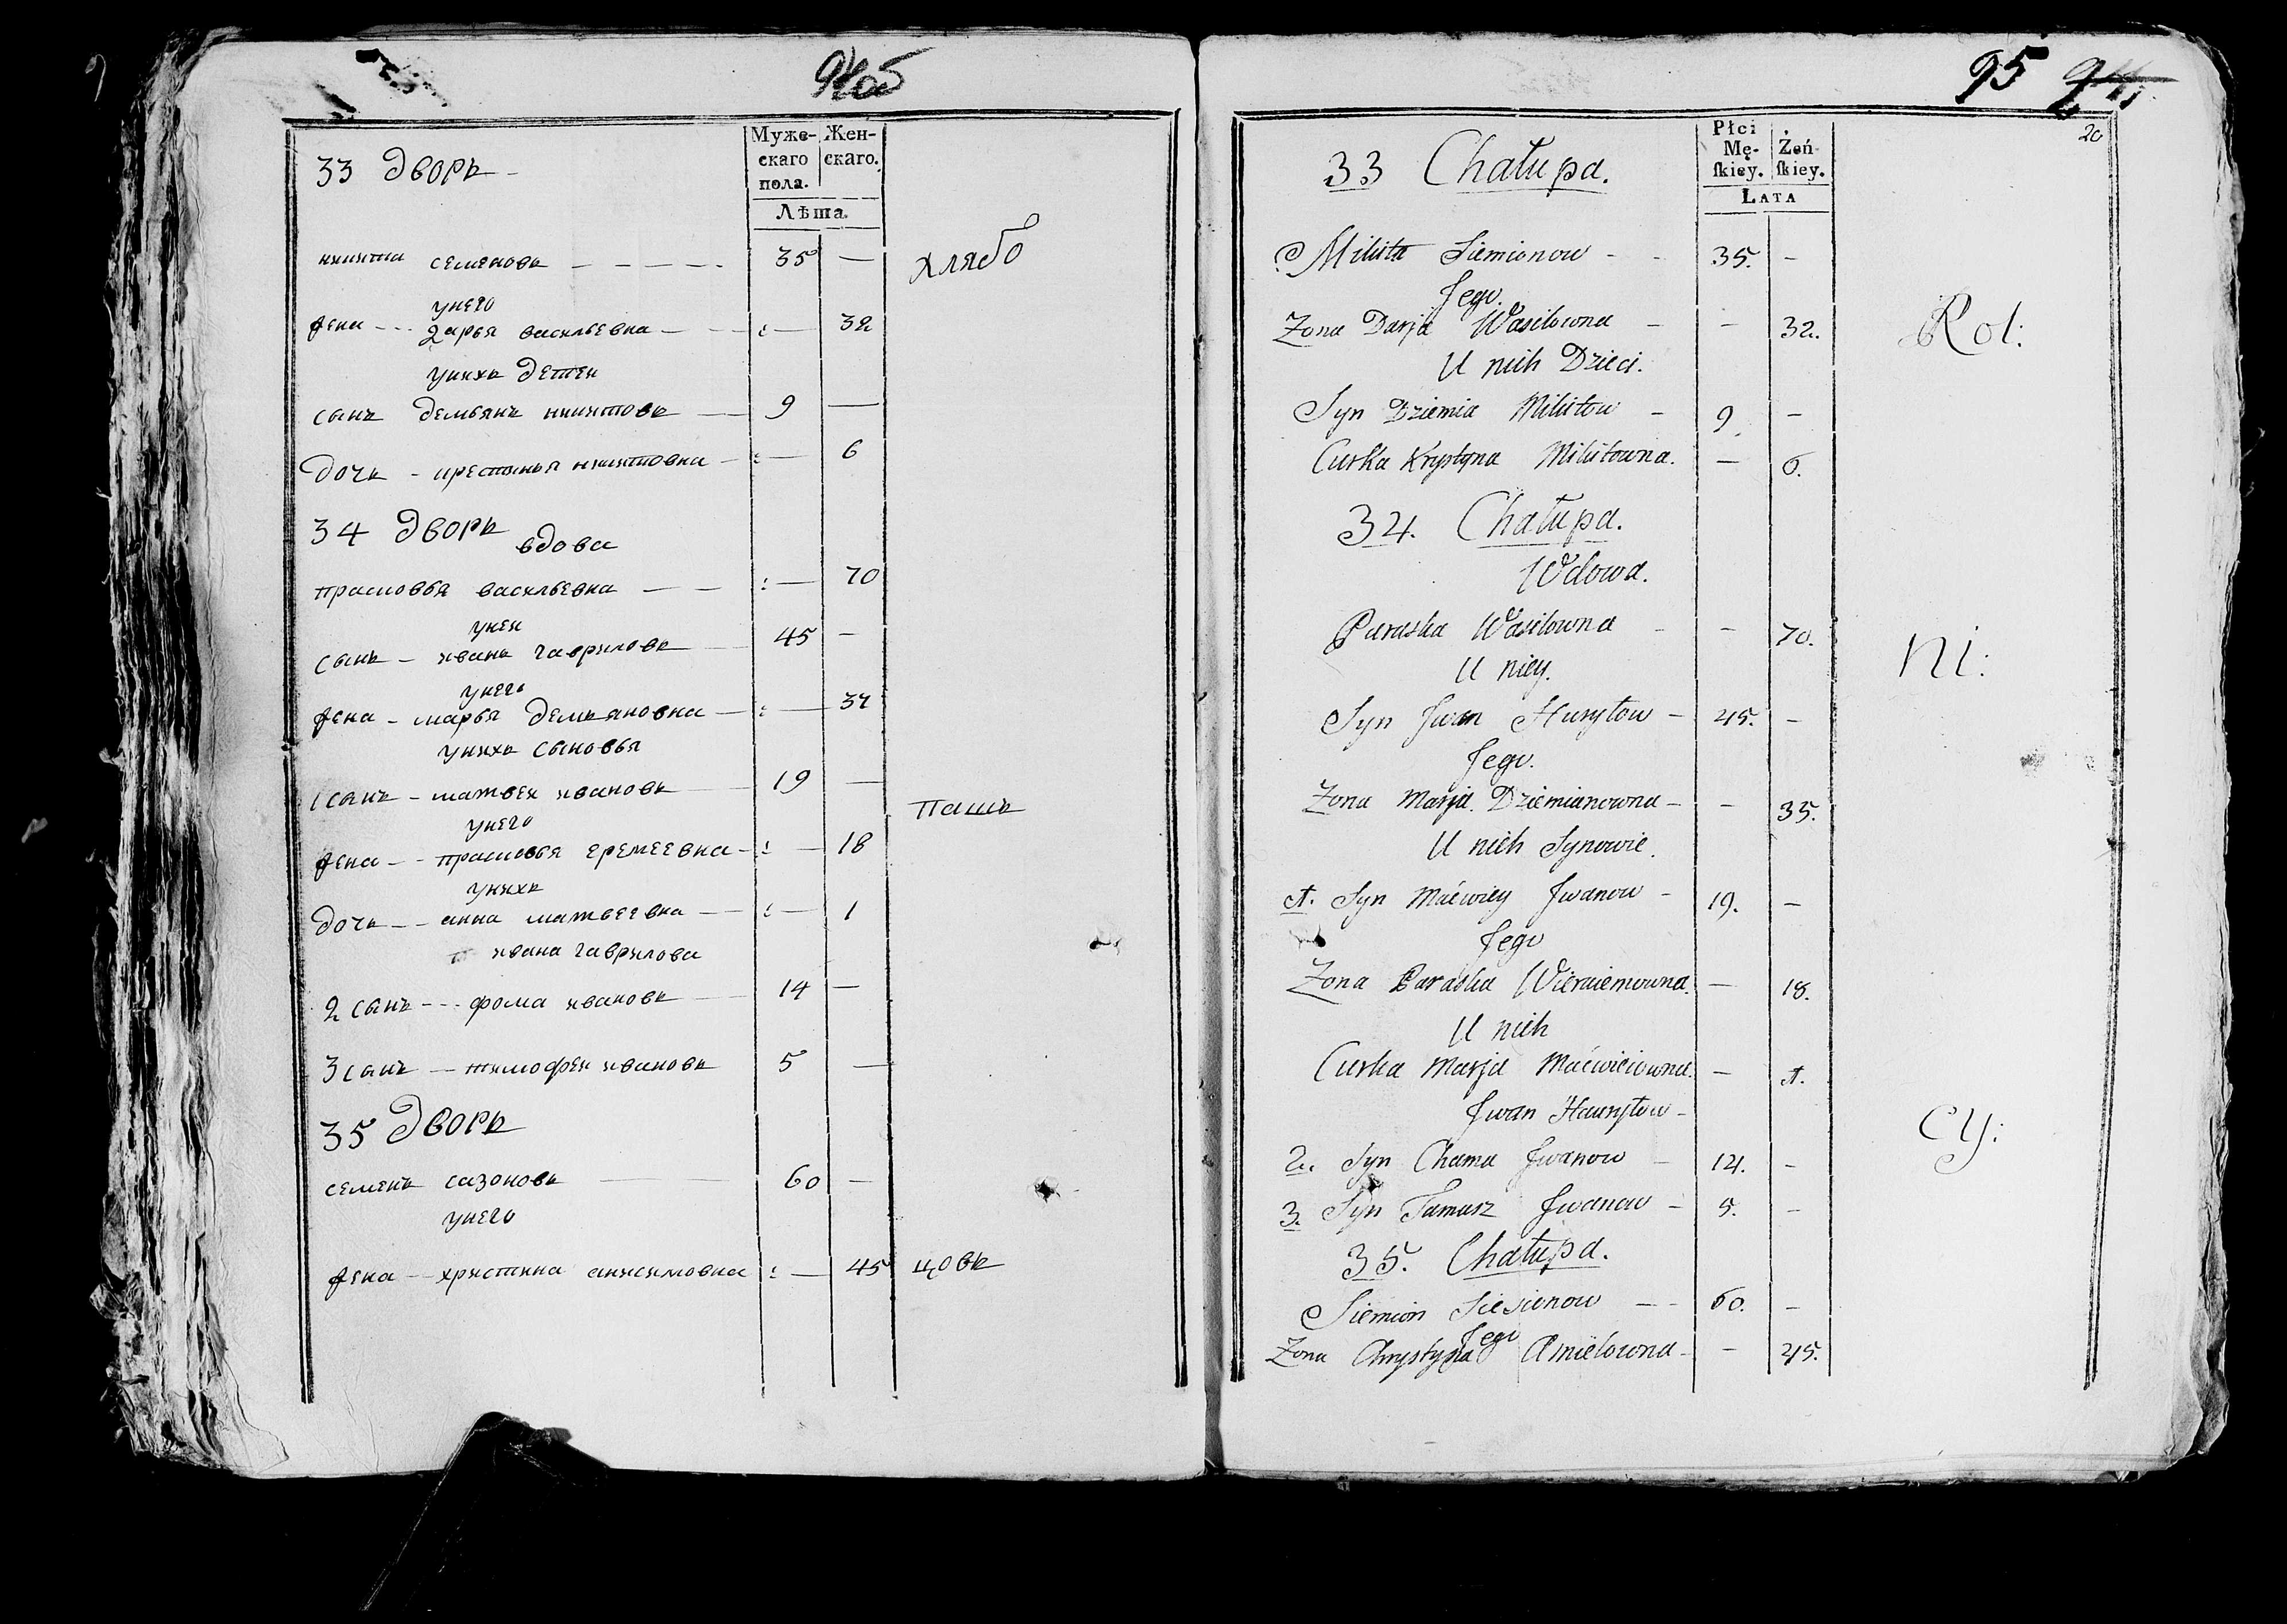 33 дворъ
Муже-
скаго
пола.
Жен-
скаго.
Лѣта.
никита семеновъ 35 —
хлябо
унего
жена дарья васильевна — 32
унихъ детей
сынъ демьянъ никитовъ 9 —
дочь крестинья никитовна — 6
34 дворъ
вдова
прасковья васильевна — 70
уней
сынъ иванъ гавриловъ 45 —
унего
жена марья демьяновна —
унихъ сыновья
1 сынъ матвей ивановъ 19 —
пашь
унего
жена прасковья еремеевна — 18
унихъ
дочь анна матвеевна — 1
ивана гаврилова
2 сынъ фома ивановъ 14 —
3 сынъ тимофей ивановъ 5 —
35 дворъ
семенъ сазоновъ 60 —
унего
жена христина анисимовна — 45
цовъ
95
20
33 Chałupa.
Płci
Mę-
skiey.
Żeń-
skiey.
LATA
Mikita Siemionow 35. -
Jego.
Zona Darja Wasilowna - 32.
Rol:
U nich Dzieci.
Syn Dziemia Mikitow 9. -
Curka Krystyna Mikitowna. - 6.
34. Chałupa.
Wdowa.
Paraska Wasilowna - 70.
U niey.
ni:
Syn Jwan Hurytow 45. -
Jego.
Zona Marja Dziemianowna - 35.
U nich Synowie.
1. Syn Maćwiey Jwanow 19. -
Jego
Zona Paraska - 18.
U nich
Curka Marja Maćwieiowna. - 1.
Jwan Haurytow
cy:
2. Syn Chama Jwanow 14. -
3. Syn Tamasz Jwanow 5. -
35. Chałupa.
Siemion 60. -
Jego
Zona Chrystyna - 45.